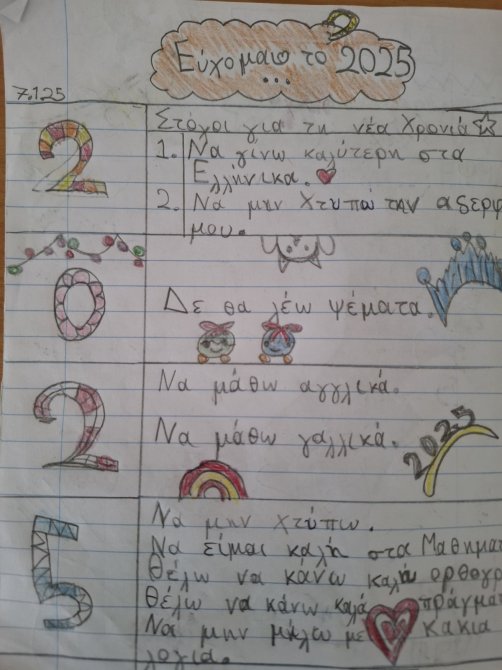 Εύχομαι το 2025
...
7.1.25
2
Στόχοι για τη νέα Χρονιά
1. Να γίνω καλύτερη στα
Ελλήνικα.
2. Να μην Χτυπώ την αδερφ
μου.
0
Δε θα λέω ψέματα.
2
Να μάθω αγγλικά.
Να μάθω γαλλικά.
2025
5
Να μην Χτύπω.
Να είμαι καλή στα Μαθηματ
Θέλω να κάνω καλά ορθογρ
Θέλω να κάνω καλά πράγμα
Να μην μιλω με κακια
λογια.